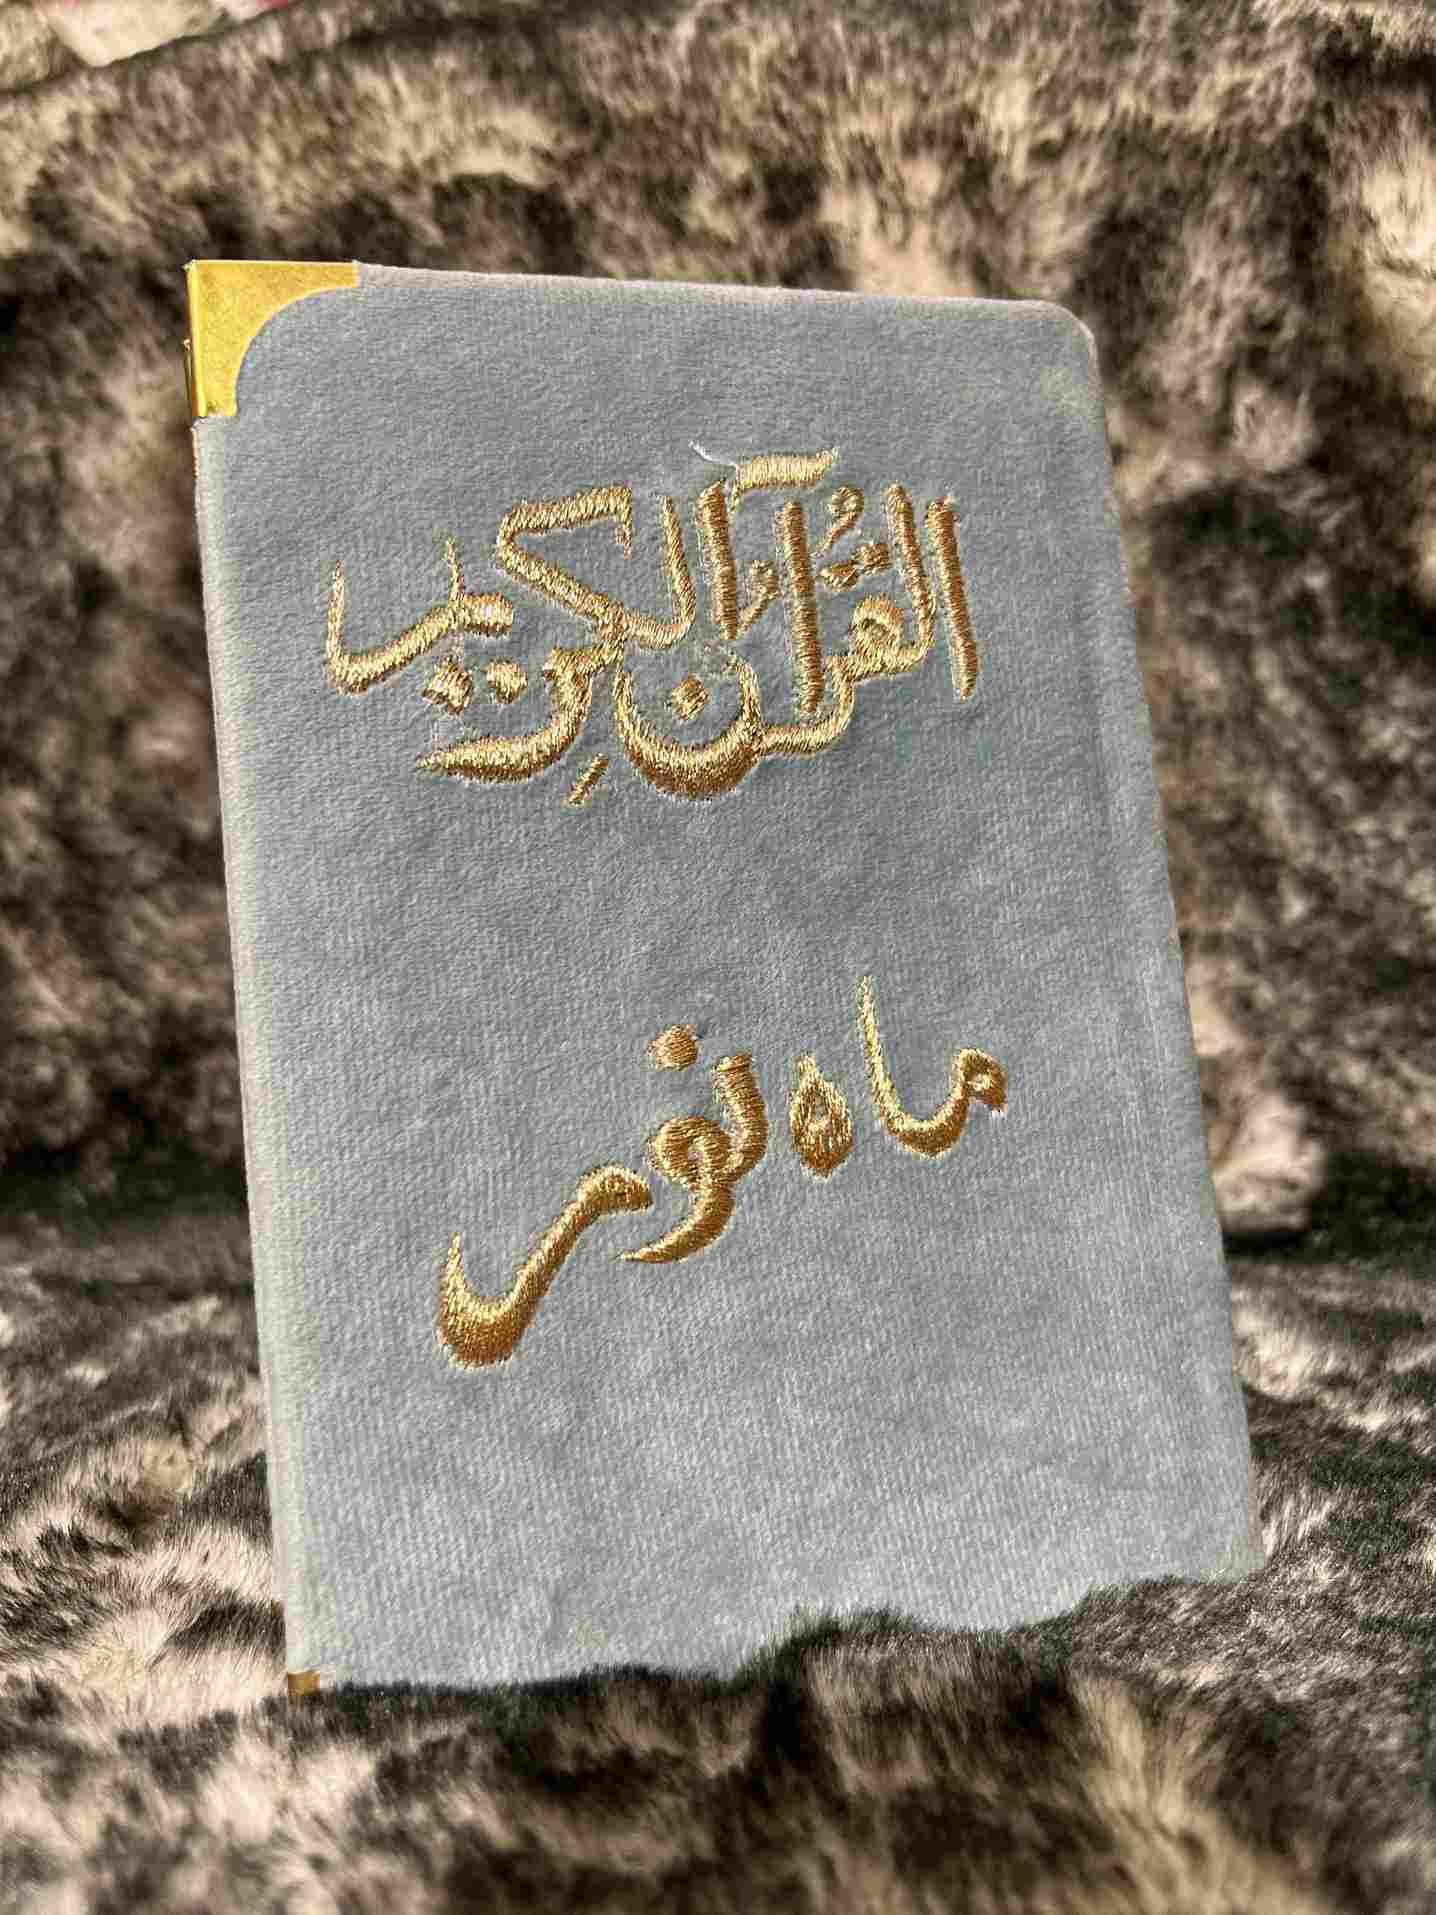 القُرآن الكَرِيم
ماه نور